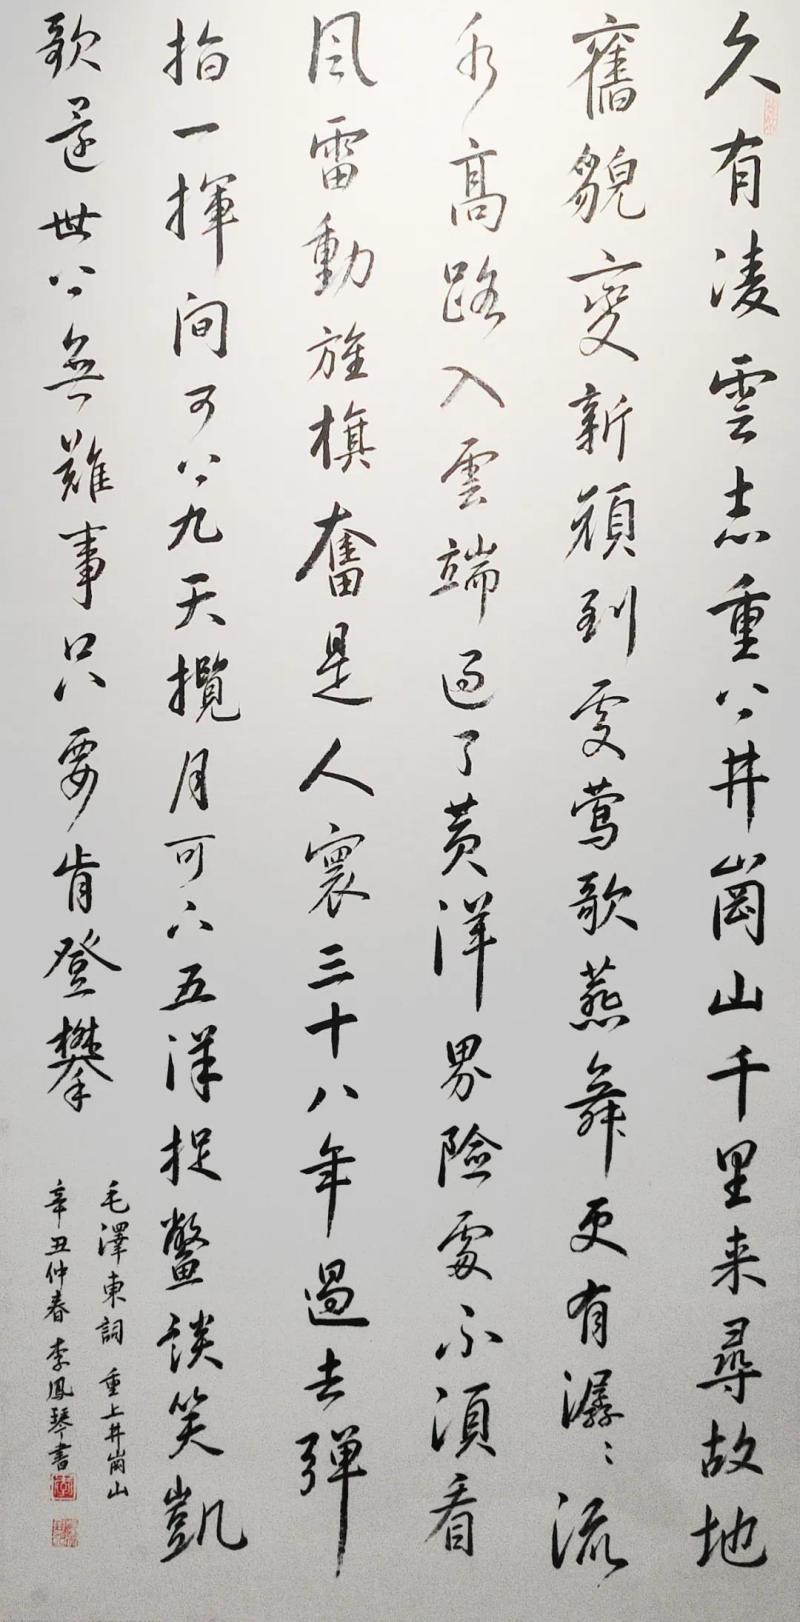 久有凌雲志重上井崗山千里来尋故地
舊貌變新顏到處鶯歌燕舞更有潺〻流
水高路入雲端過了黃洋界險處不須看
風雷動旌旗奮是人寰三十八年過去彈
指一揮間可上九天攬月可下五洋捉鱉談笑凱
歌還世上無難事只要肯登攀
毛澤東詞 重上井崗山
辛丑仲春 李鳳琴書